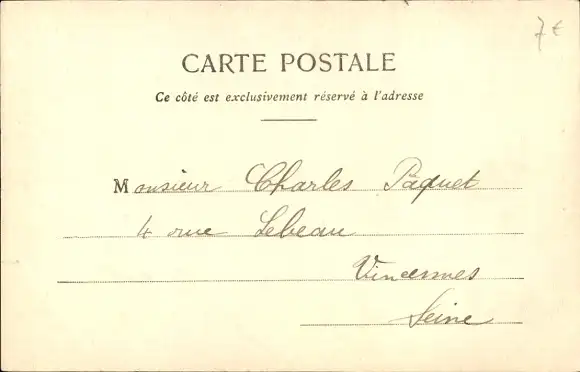 7€
CARTE POSTALE
Ce côté est exclusivement réservé à l'adresse
Monsieur Charles Paquet
4 rue Lebeau
Vincennes
Seine